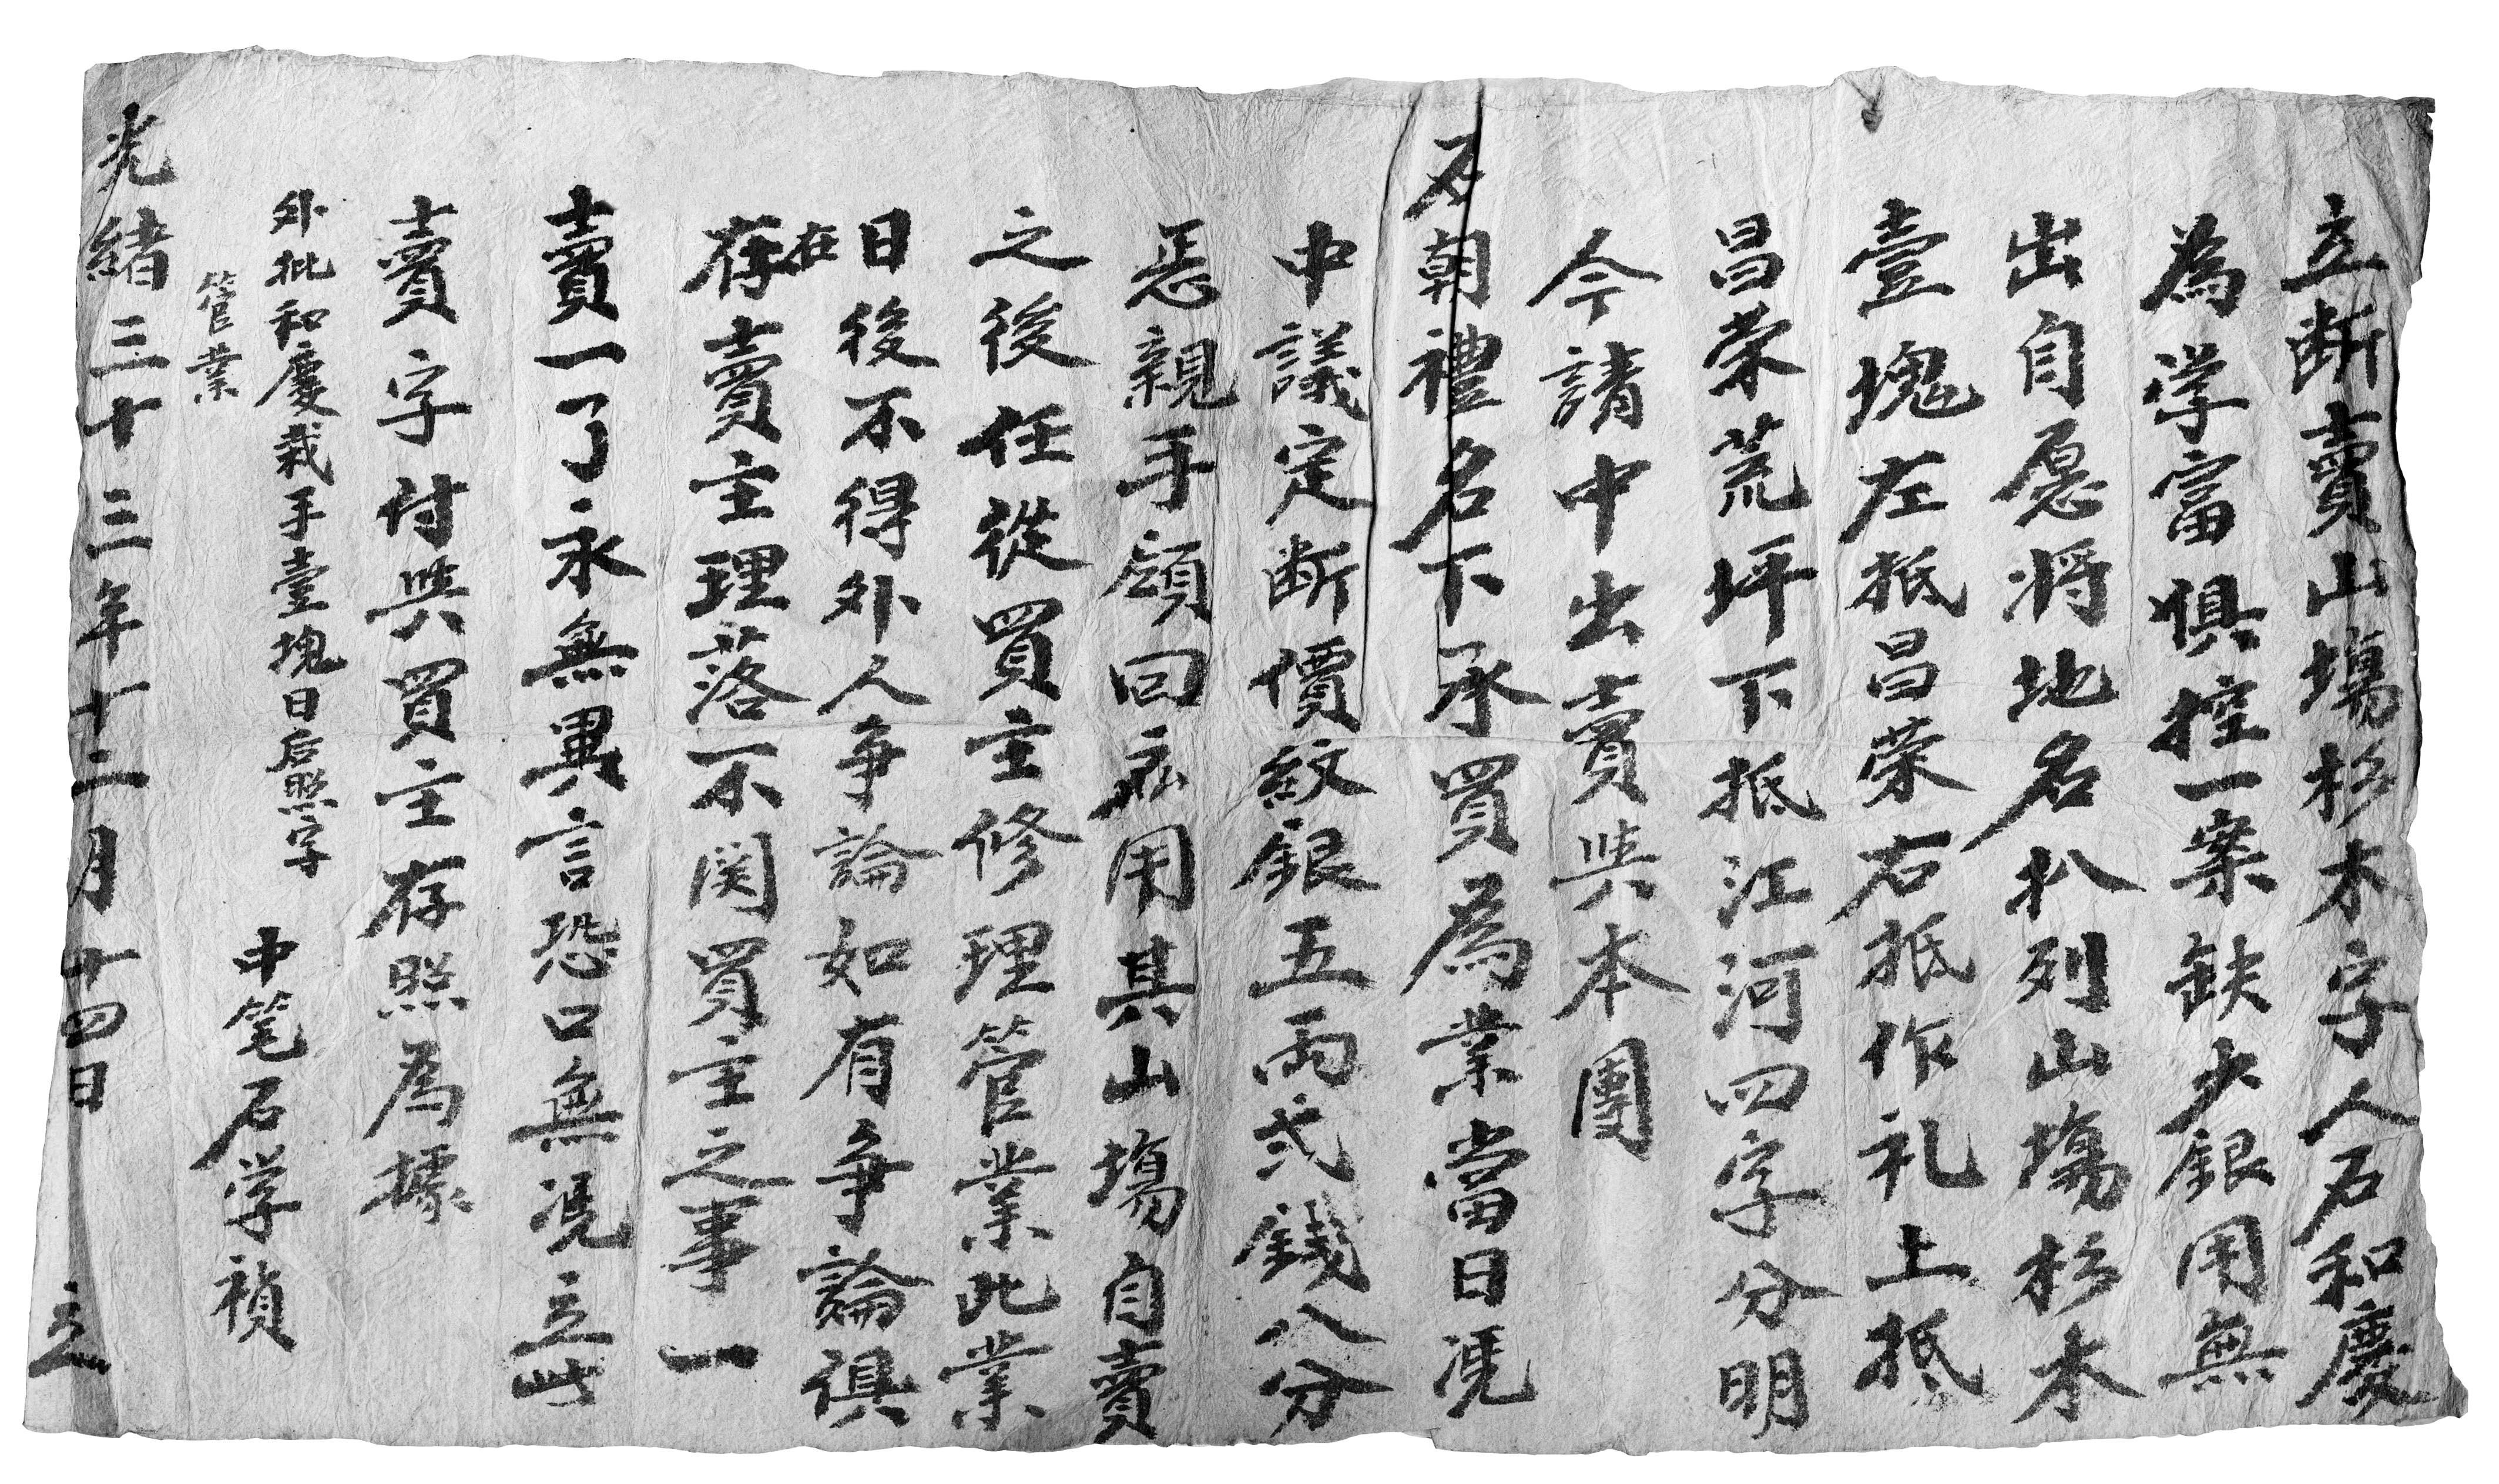 立断賣山塲杉木字人石和慶
為学富惧控一案缺少銀用無
出自愿将地名朳列山塲杉木
壹塊左抵昌荣右抵作礼上抵
昌荣荒坪下抵江河四字分明
今請中出賣與本團
石朝禮名下承買為業當日凴
中議定断價紋銀五両弍錢八分
恁親手領回應用其山塲自賣
之後任從買主修理管業此業
日後不得外人争論如有争論俱
在存賣主理落不関買主之事一
賣一了永無異言恐口無凴立些
賣字付與買主存照為據
外批和慶栽手壹塊日后照字
管業
中笔石学禎
光緒三十三年十二月十四日 立